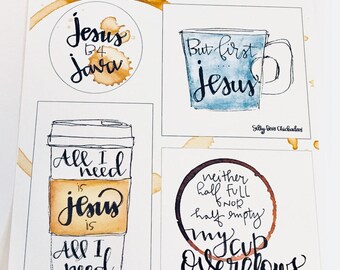 Jesus
B4
Java
But first
Jesus
All I
need
is
jesus
is
All I
need
neither
half full
nor
half empty
my
cup
overflows